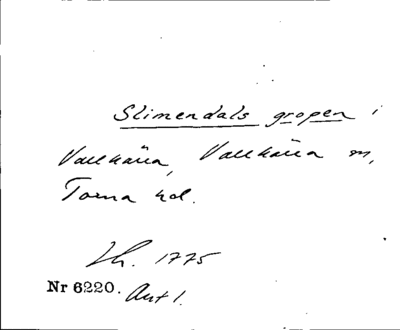 Slimendals gropen i
Vallkärra, Vallkärra sn,
Torna hd.
Lh. 1775
Nr 6220. Akt 1.